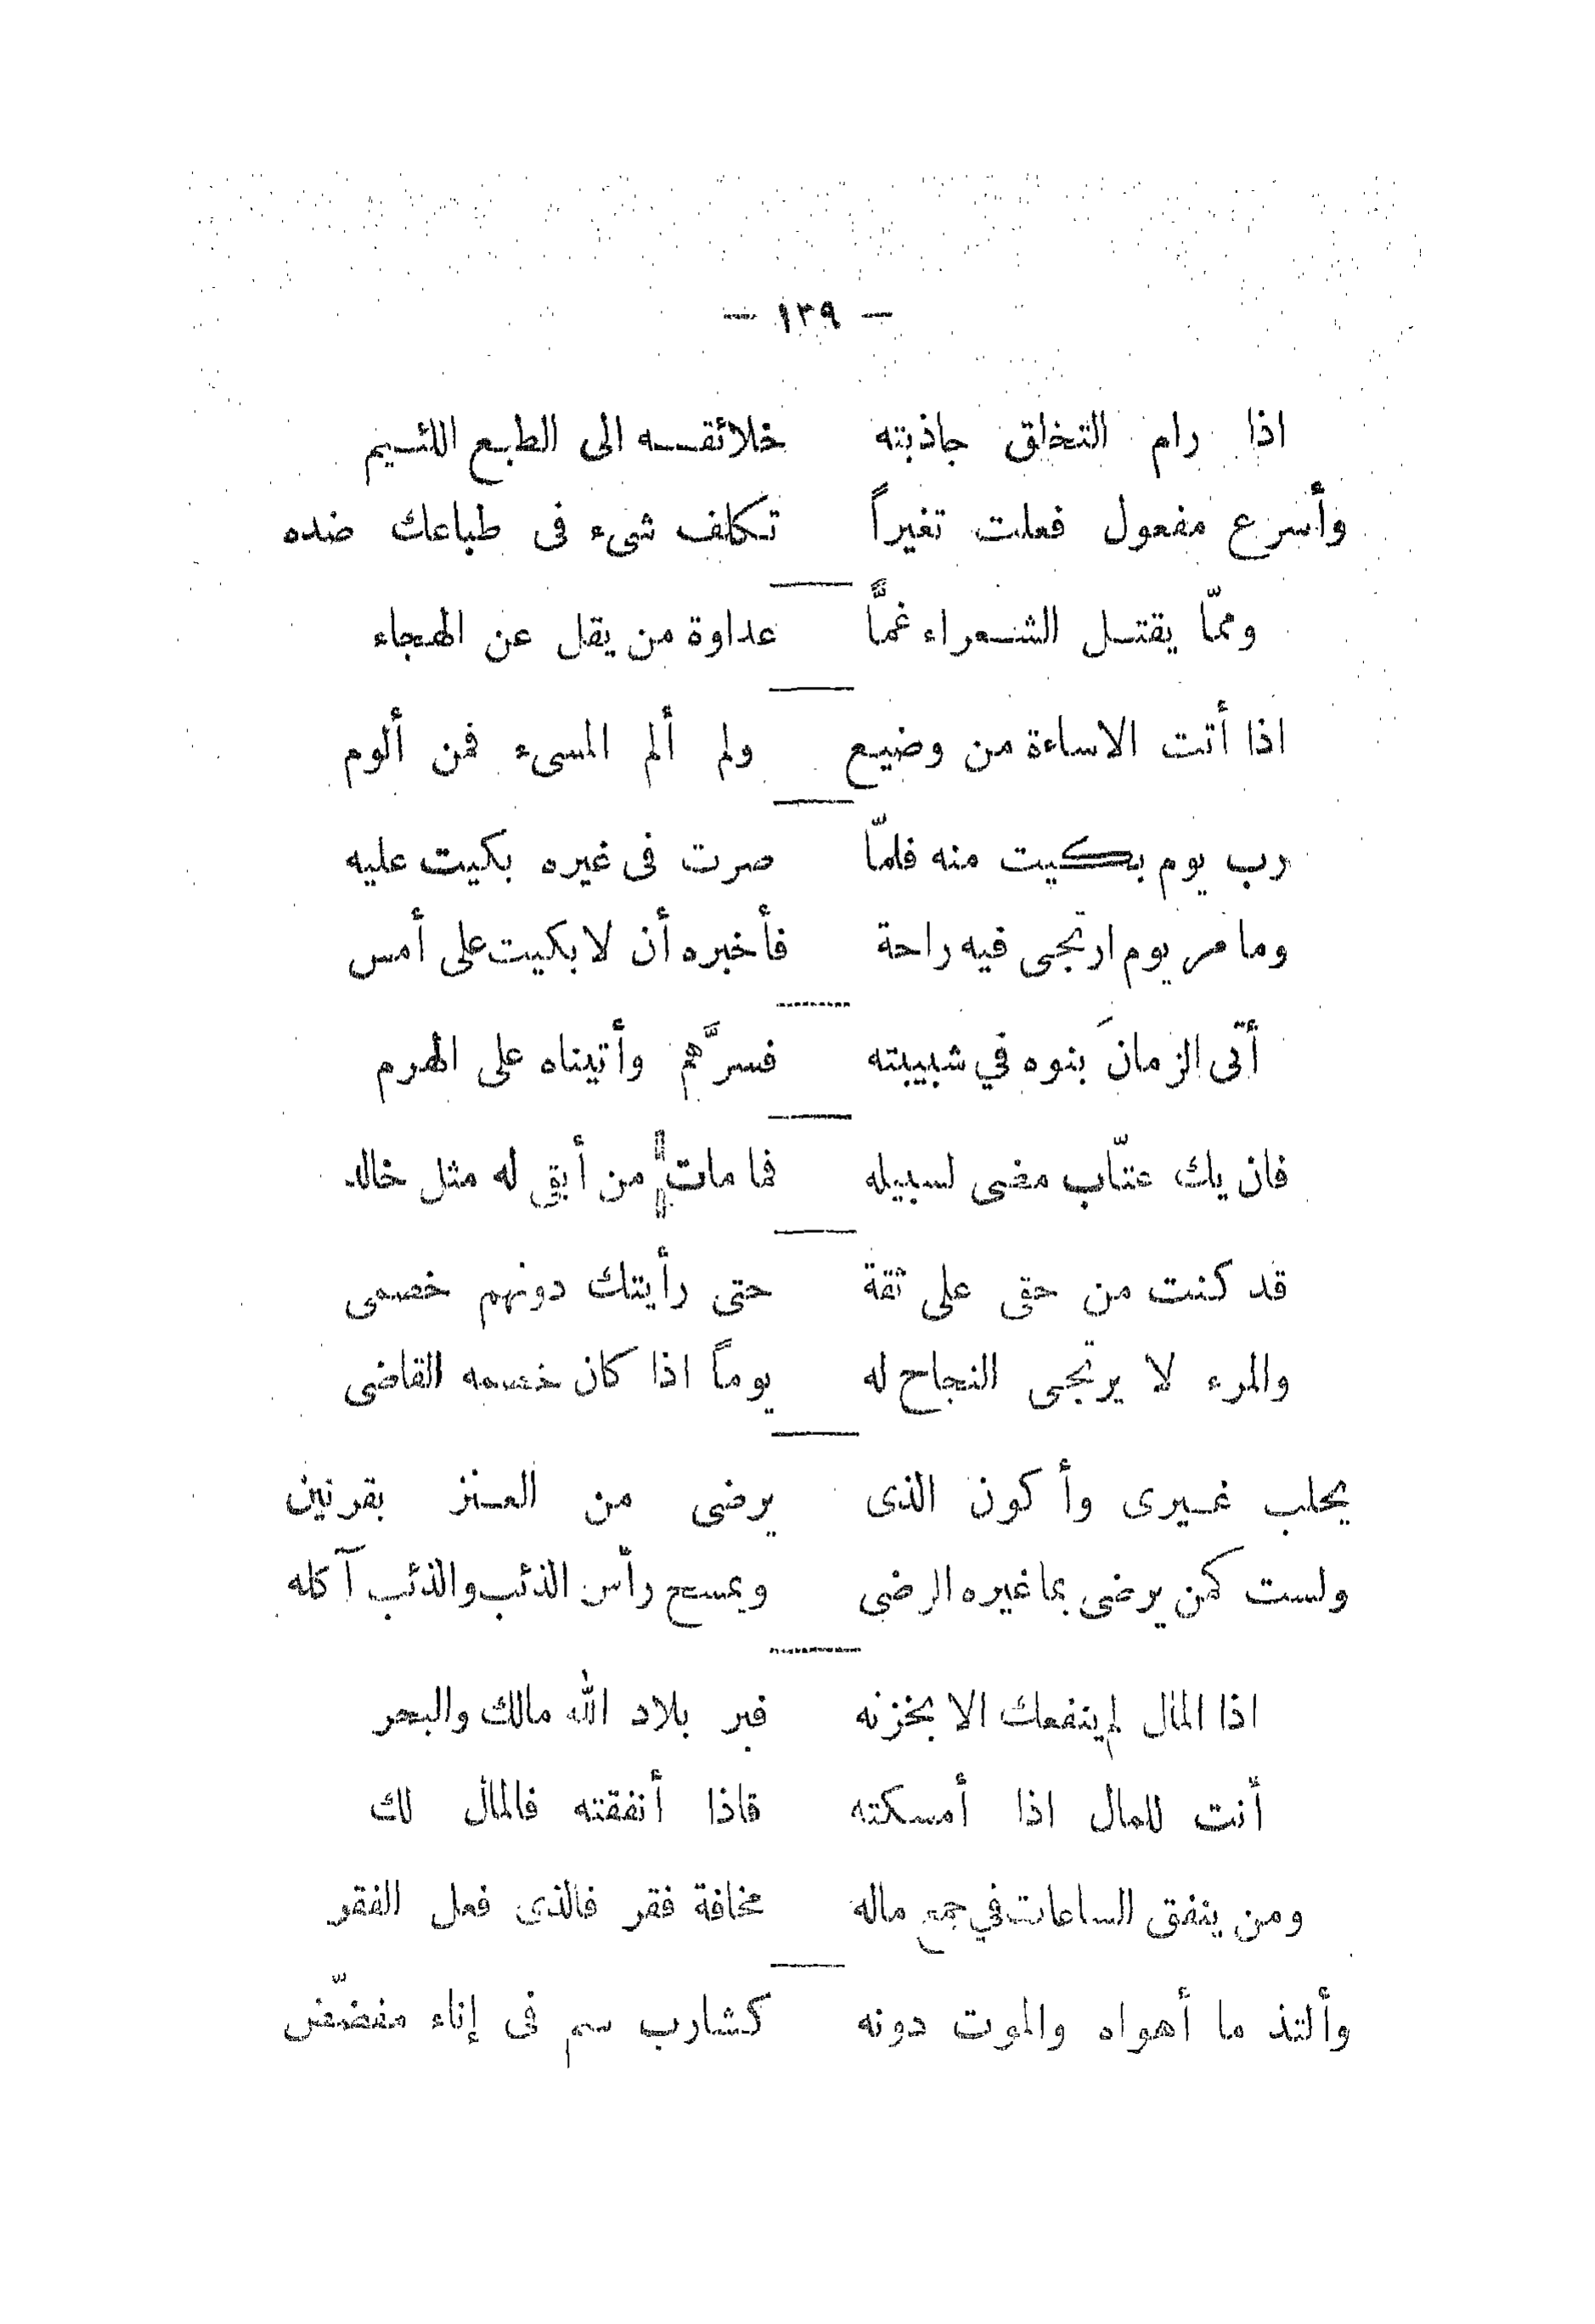 — ١٣٩ —
اذا رام التخلق جاذبته خلائقــه الى الطبع اللئــيم
وأسرع مفعول فعلت تغيراً تكلف شىء فى طباعك ضده
وممّا يقتــل الشــعراء غمّاً عداوة من يقل عن الهجاء
اذا أتت الاساءة من وضيع ولم ألم المسىء فمن ألوم
رب يوم بكيت منه فلمّا صرت فى غيره بكيت عليه
وما مر يوم ارتجى فيه راحة فأخبره أن لا بكيت على أمس
أتى الزمانَ بنوه في شبيبته فسرَّهم وأتيناه على الهرم
فان يك عتّاب مضى لسبيله فما مات من أبقى له مثل خالد
قد كنت من حقى على ثقة حتى رأيتك دونهم خصمى
والمرء لا يرتجى النجاح له يوماً اذا كان خصمه القاضى
يحلب غــيرى وأكون الذى يرضى من العــنز بقرنين
ولست كمن يرضى بما غيره الرضى ويمسح رأس الذئب والذئب آكله
اذا المال لم ينفعك الا بخزنه فبر بلاد الله مالك والبحر
أنت للمال اذا أمسكته فاذا أنفقته فالمال لك
ومن ينفق الساعات في جمع ماله مخافة فقر فالذى فعل الفقر
وألتذ ما أهواه والموت دونه كشارب سم فى إناء مفضّض